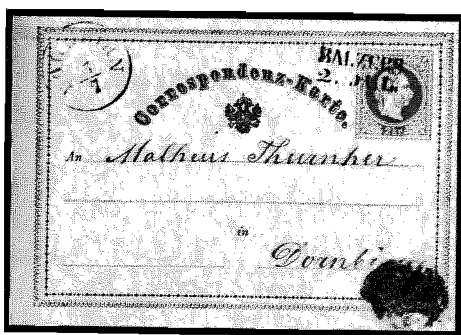 BALZERS
2. JUL.
3/7
Correspondenz-Karte.
An Matheus Thurnher
in
Dornbi